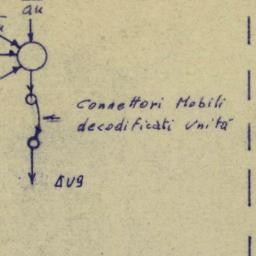 au
Connettori Mobili
decodificati unità
Δug